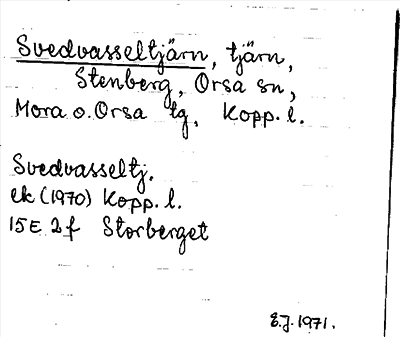 Svedvasseltjärn, tjärn,
Stenberg, Orsa sn,
Mora o. Orsa tg, Kopp. l.
Svedvasseltj.
ek (1970) Kopp. l.
15E 2f Storberget
E.J. 1971.